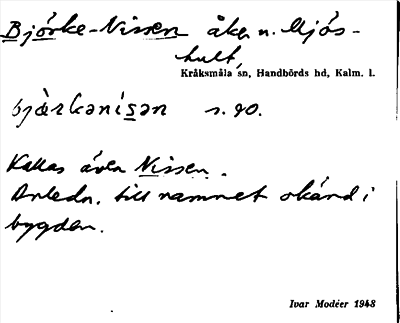 Björke-Nissen åker n. Mjös-
hult,
Kråksmåla sn, Handbörds hd, Kalm. l.
bjæ̀rkənisən s. 90.
Kallas även Nissen.
Anledn. till namnet okänd i
bygden.
Ivar Modéer 1943